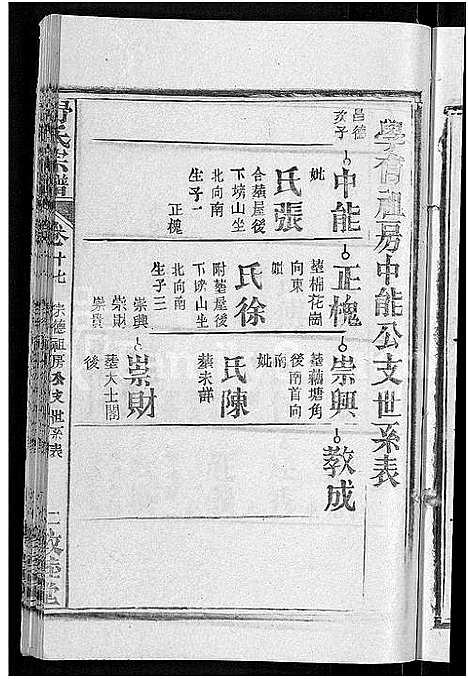 學育祖房中能公支世系表
昌德
次子
中能
妣
張氏
合塟屋後
下塝山坐
北向南
生子一
正槐
正槐
塟棉花崗
向東
妣
徐氏
附塟屋後
下塝山坐
北向南
生子三
崇興
崇財
崇貴
崇興
塟藕塘角
後南首向
南
妣
陳氏
塟未詳
崇財
塟大士閣
後
教成
舒氏宗譜
卷十七
宗德祖房公支世系表